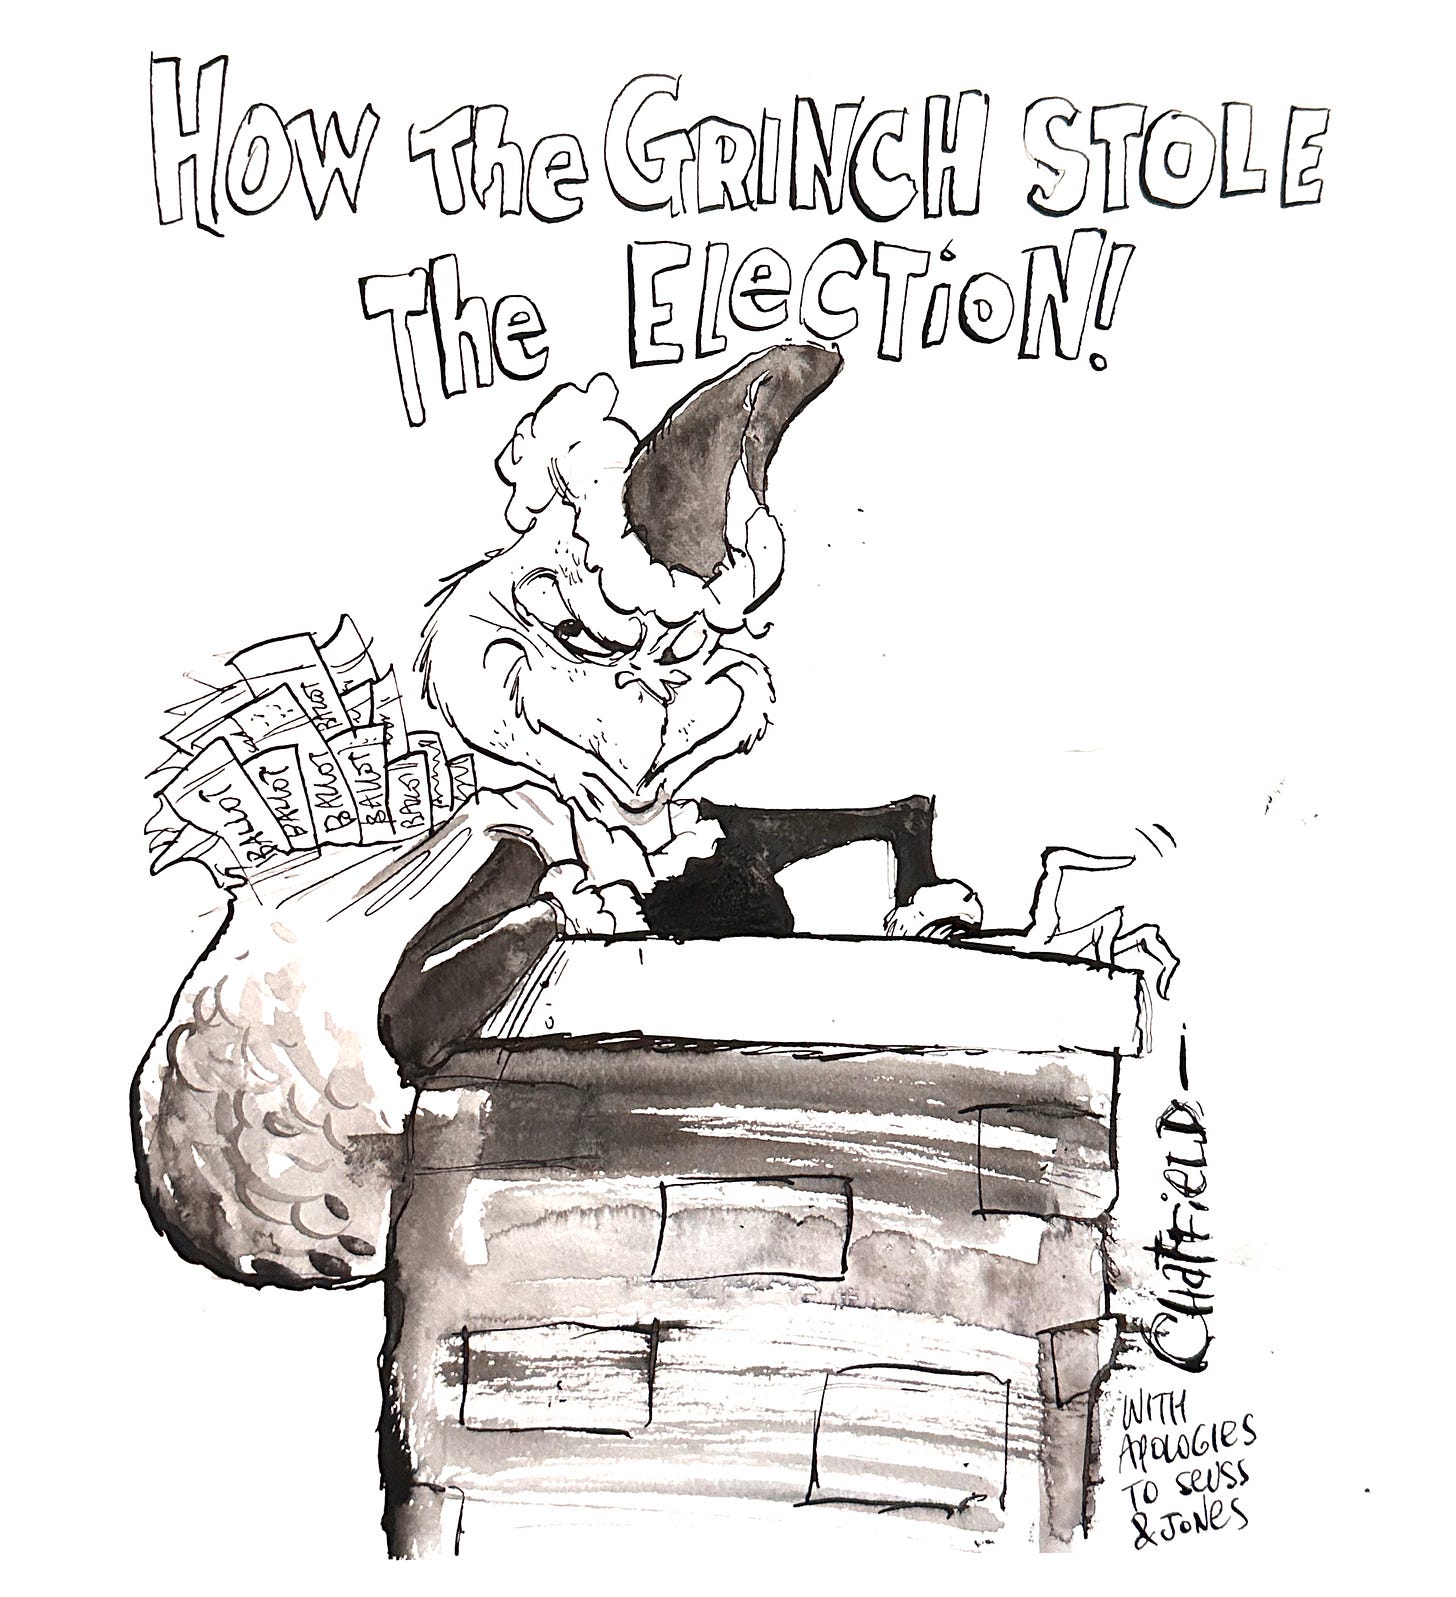 How The GRINCH STOLE
The ElecTioN!
BALLOT
BALLOT
BALLOT
BALLOT
BALLOT
BALLOT
CHATFieLD
WITH
APOLOGIES
TO SEUSS
& JONES